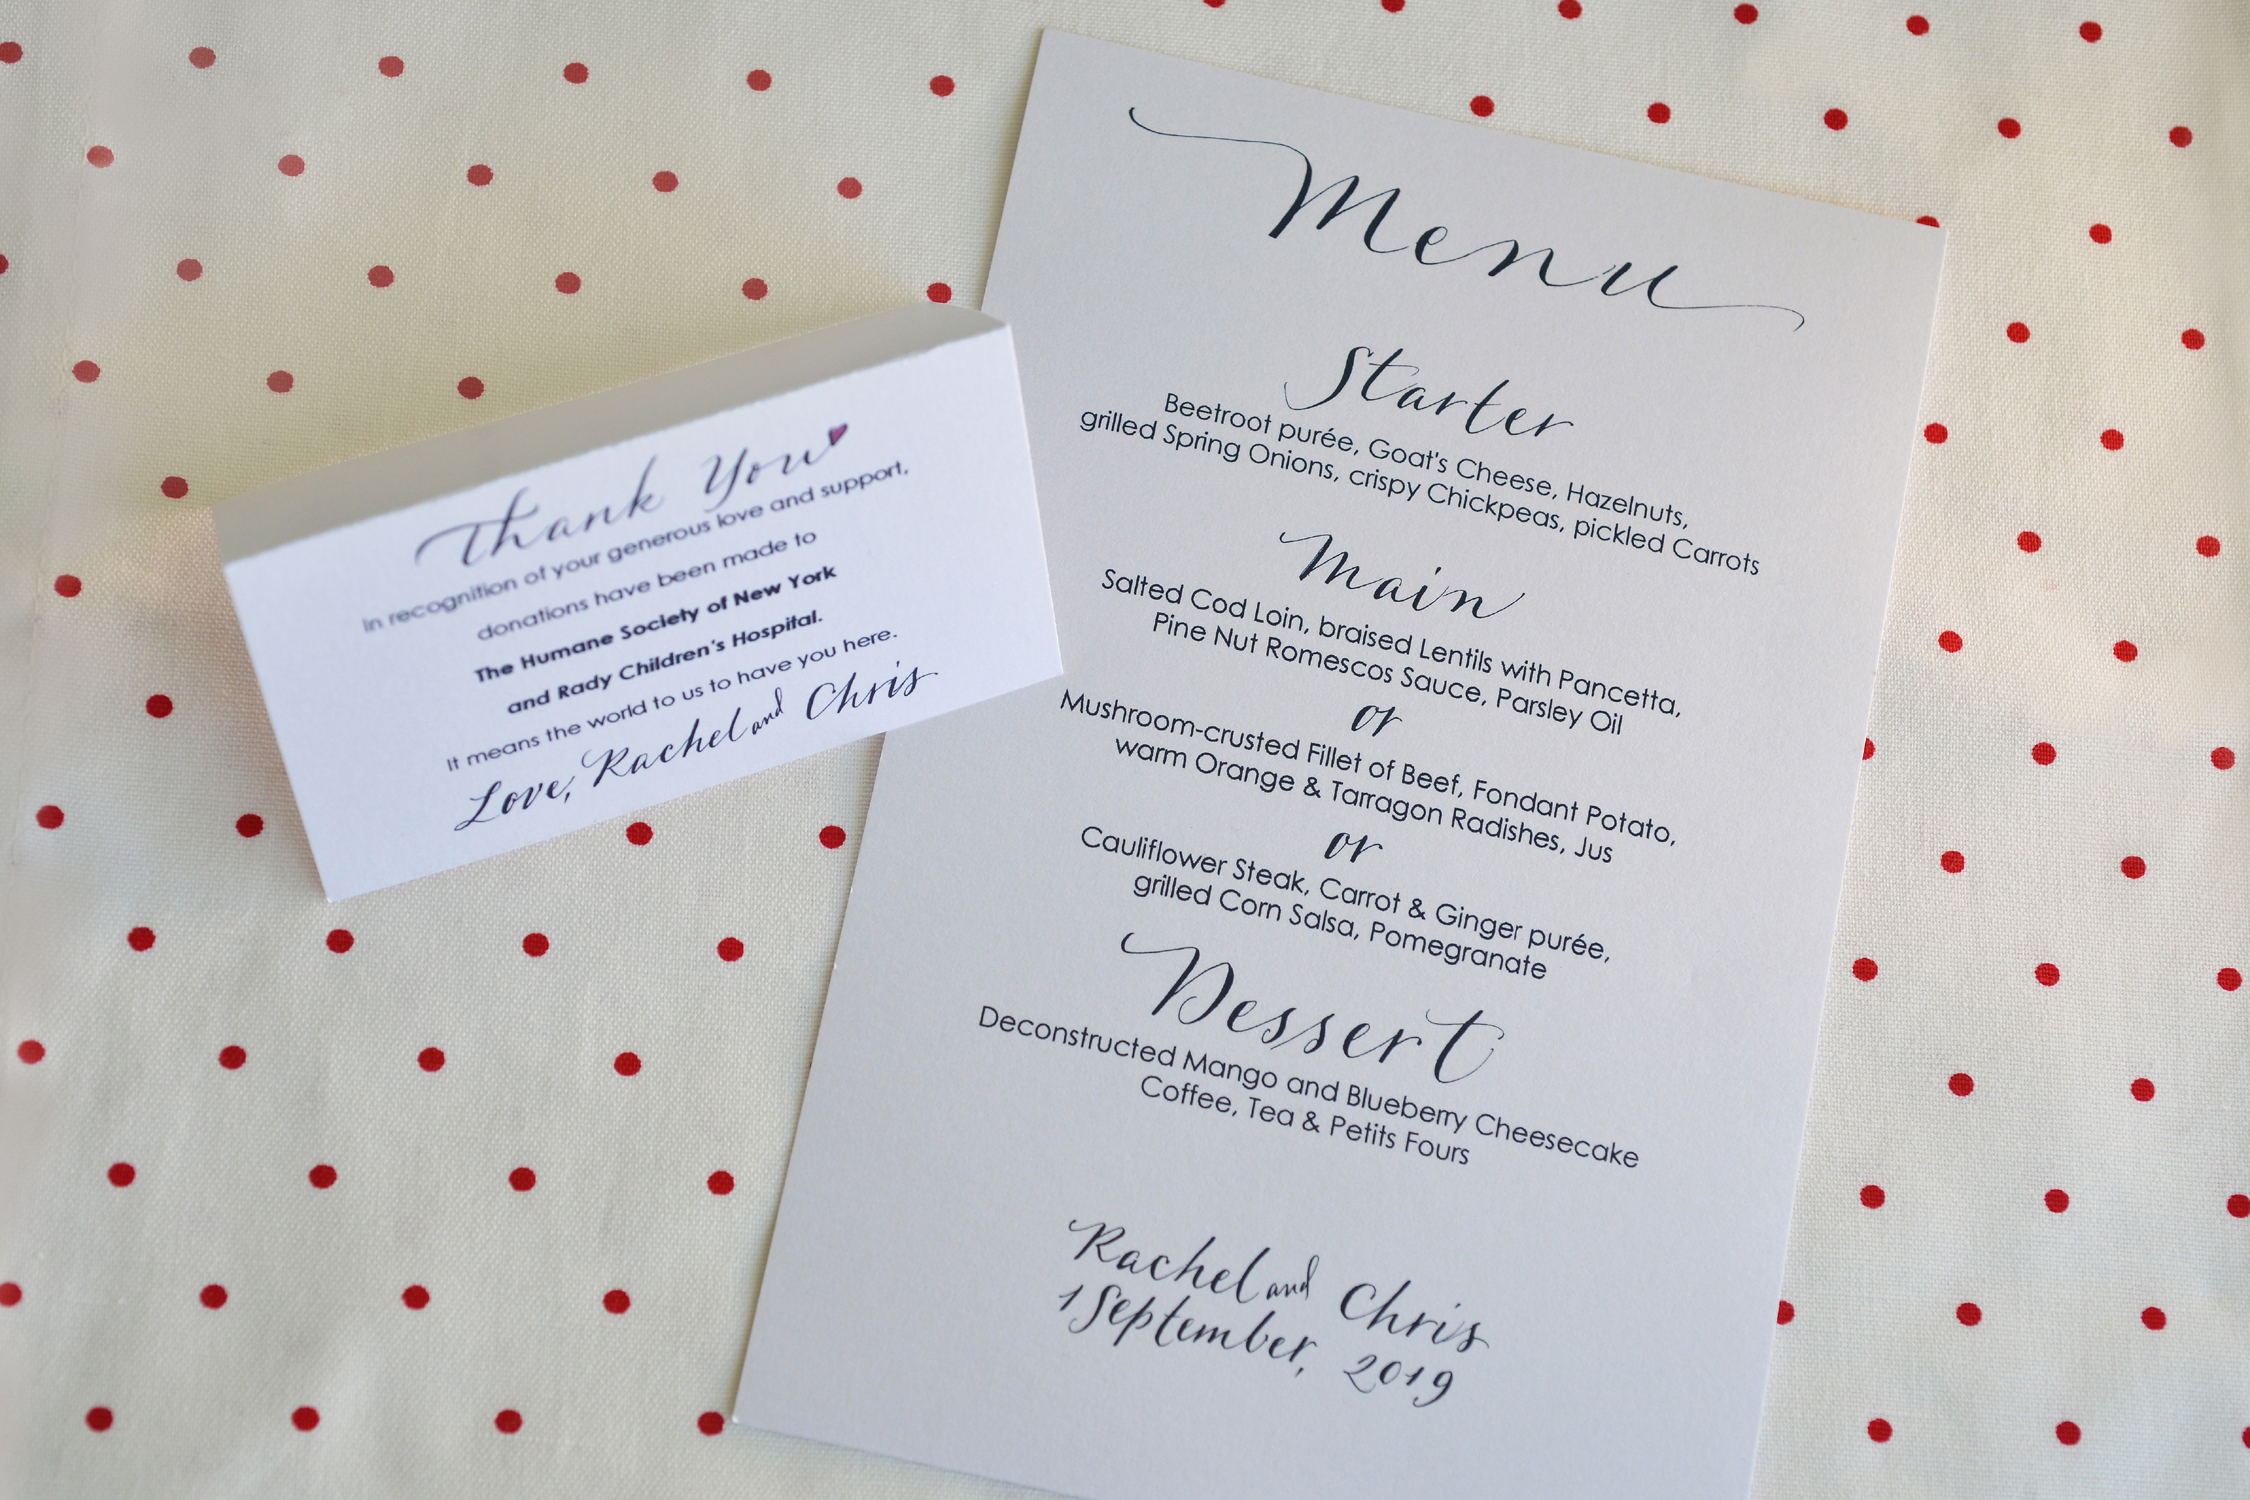 Thank You
In recognition of your generous love and support,
donations have been made to
The Humane Society of New York
and Rady Children's Hospital.
It means the world to us to have you here.
Love, Rachel and Chris
Menu
Starter
Beetroot purée, Goat's Cheese, Hazelnuts,
grilled Spring Onions, crispy Chickpeas, pickled Carrots
Main
Salted Cod Loin, braised Lentils with Pancetta,
Pine Nut Romescos Sauce, Parsley Oil
or
Mushroom-crusted Fillet of Beef, Fondant Potato,
warm Orange & Tarragon Radishes, Jus
or
Cauliflower Steak, Carrot & Ginger purée,
grilled Corn Salsa, Pomegranate
Dessert
Deconstructed Mango and Blueberry Cheesecake
Coffee, Tea & Petits Fours
Rachel and Chris
1 September, 2019